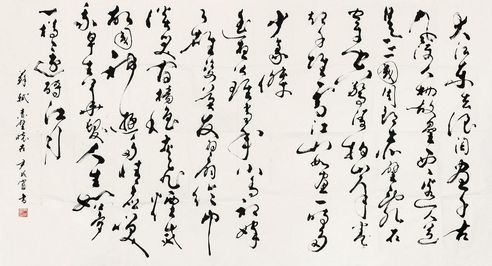 大江東去浪淘盡千古
風流人物故壘西邊人道
是三國周郎赤壁亂石
穿空驚濤拍岸卷
起千堆雪江山如畫一時多
少豪傑
遙想公瑾當年小喬初嫁
了雄姿英發羽扇綸巾
談笑間檣櫓灰飛煙滅
故國神遊多情應笑
我早生華髮人生如夢
一樽還酹江月
蘇軾赤壁懷古 書